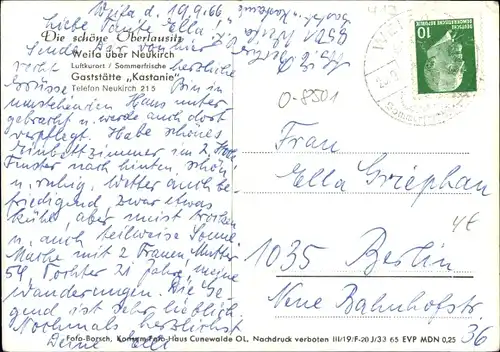 Weifa d. 19.9.66
Liebe Tante Ella!
Die schöne Oberlausitz
Weifa über Neukirch
Luftkurort / Sommerfrische
Gaststätte „Kastanie"
Telefon Neukirch 215
Sende Dir von hier
recht herzliche
Grüsse. Bin in
umstehenden Haus unter
gebracht u. werde auch dort
verpflegt. Habe schönes
Einbettzimmer im 2. Stock
Fenster nach hinten, schön
u. ruhig, Wetter auch be
friedigend, zwar etwas
kühl, aber meist trocken
u. auch teilweise Sonne
Mache mit 2 Frauen Mutter
54 Tochter 21 Jahre, meine
Wanderungen. Die Ge
gend ist sehr lieblich
Nochmals herzlichst
Deine Elli
0-8501
DEUTSCHE
DEMOKRATISCHE REPUBLIK
10
Frau
Ella Griephan
1035 Berlin
Neue Bahnhofstr.
36
4€
Foto-Borsch, Kottmarsdorf Haus Cunewalde OL, Nachdruck verboten III/19/F-20 J/33 65 EVP MDN 0,25